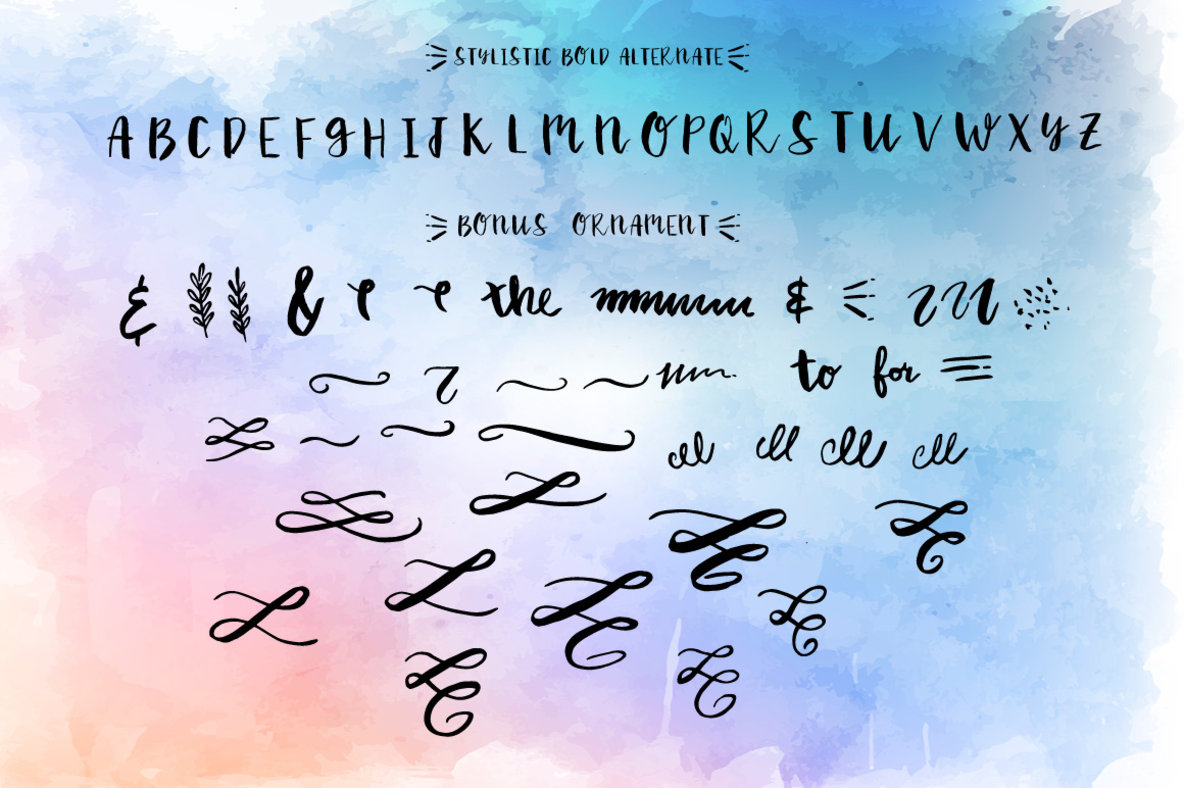 STYLISTIC BOLD ALTERNATE
A B C D E F G H I J K L M N O P Q R S T U V W X Y Z
BONUS ORNAMENT
& & the &
to for